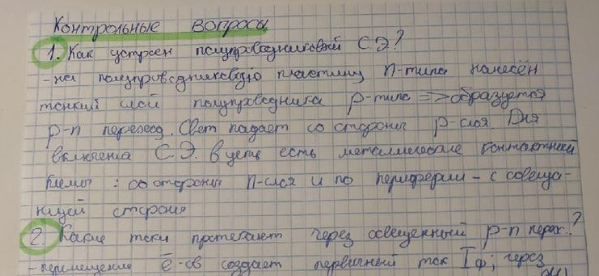 Контрольные вопросы
1. Как устроен полупроводниковый СЭ?
- на полупроводниковую пластину n-типа нанесён
тонкий слой полупроводника p-типа => образуется
p-n переход. Свет падает со стороны p-слоя. Для
включения СЭ. в цепь есть металлические контактн
клемы: со стороны n-слоя и по периферии - с освеща-
ющей стороны
2. Какие токи протекают через освещенный p-n перех.?
- перемещение ē-ов создает первичный ток Iф; через